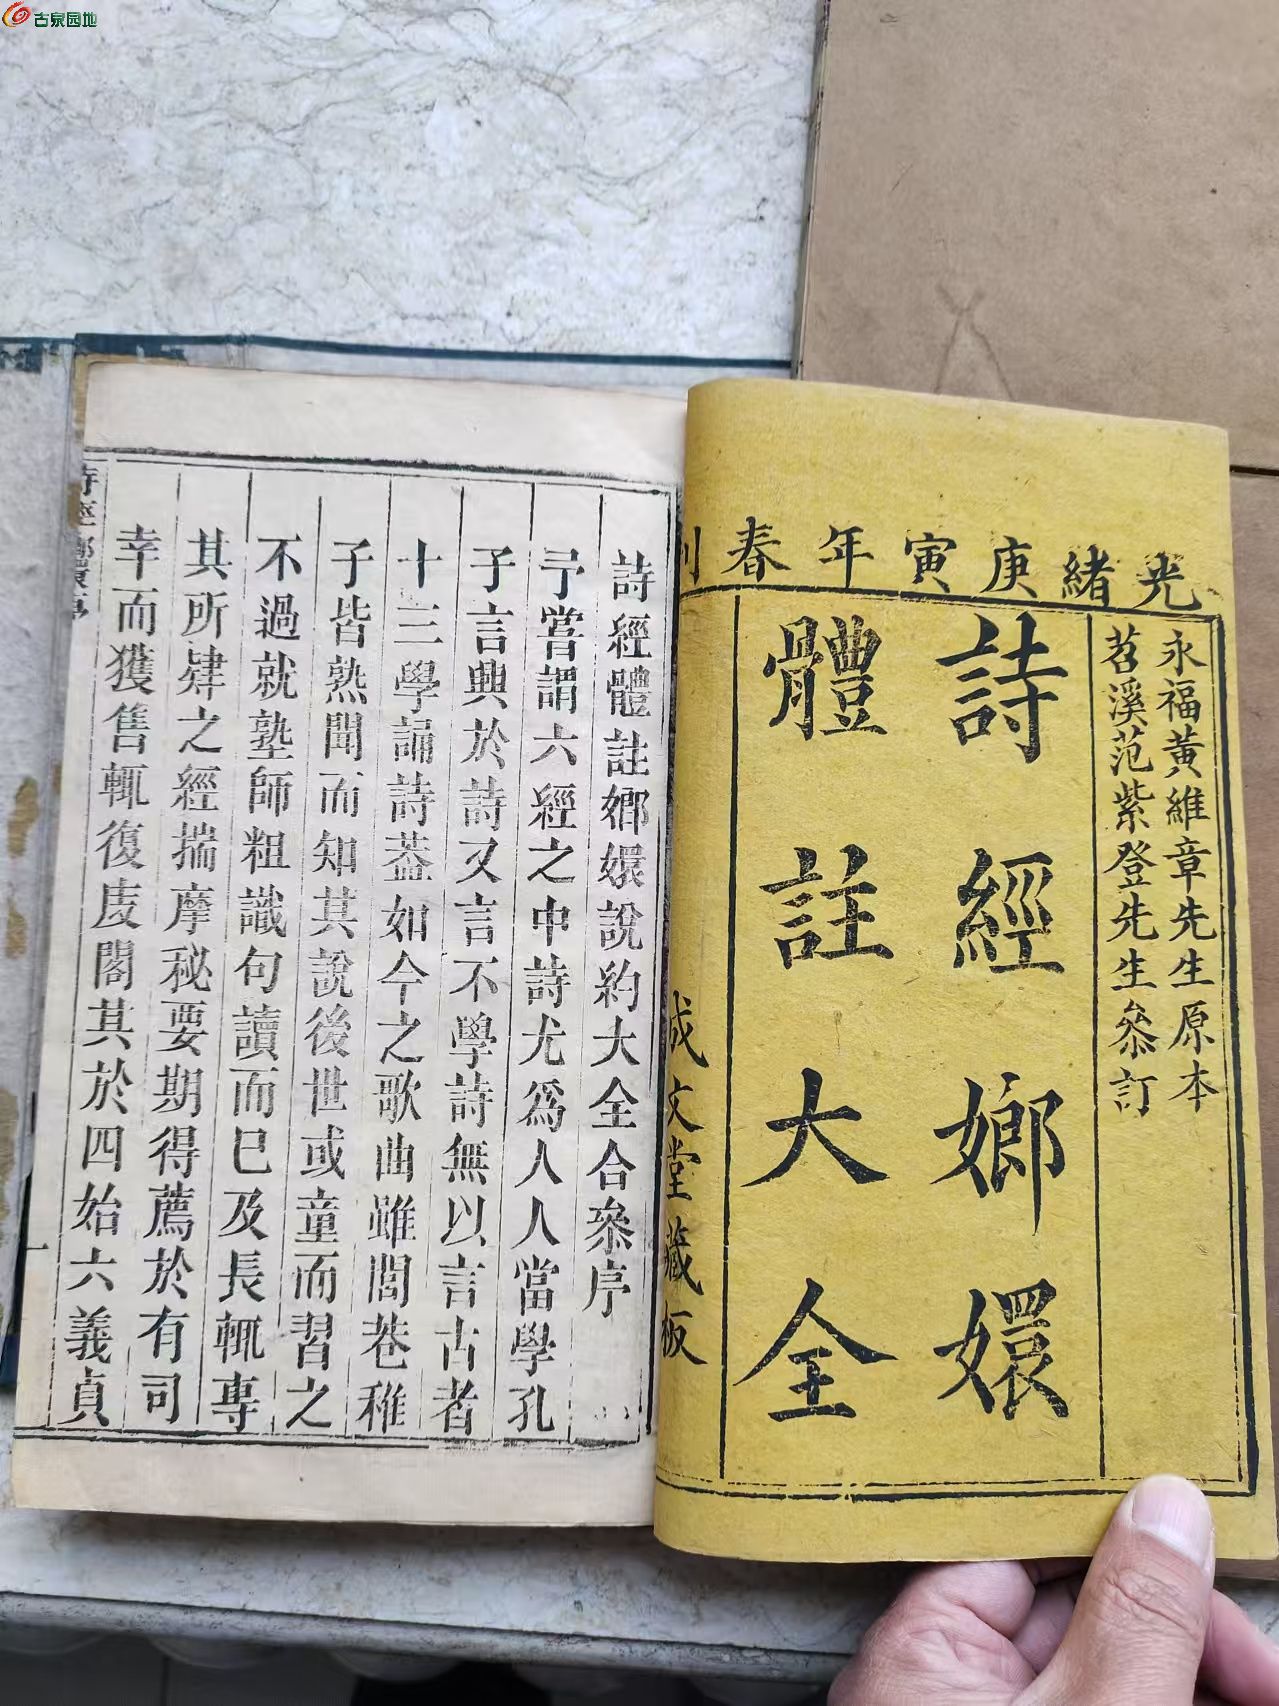 古泉园地
光緒庚寅年春刊
永福黃維章先生原本
苕溪范紫登先生叅訂
詩經嫏嬛
體註大全
成文堂藏板
詩經體註嫏嬛說約大全合叅序
予嘗謂六經之中詩尤爲人人當學孔
子言興於詩又言不學詩無以言古者
十三學誦詩葢如今之歌曲雖閭巷稚
子皆熟聞而知其說後世或童而習之
不過就塾師粗識句讀而已及長輒專
其所肄之經揣摩秘要期得薦於有司
幸而獲售輒復庋閣其於四始六義貞
詩經嫏嬛序
一